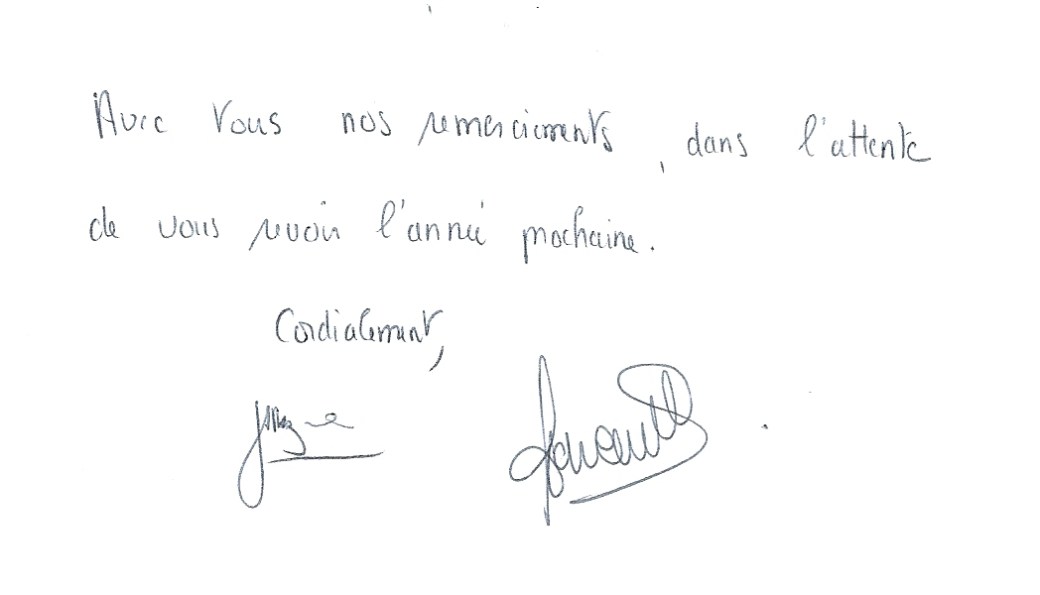 Avec Vous nos remerciements, dans l'attente
de vous revoir l'année prochaine.
Cordialement,